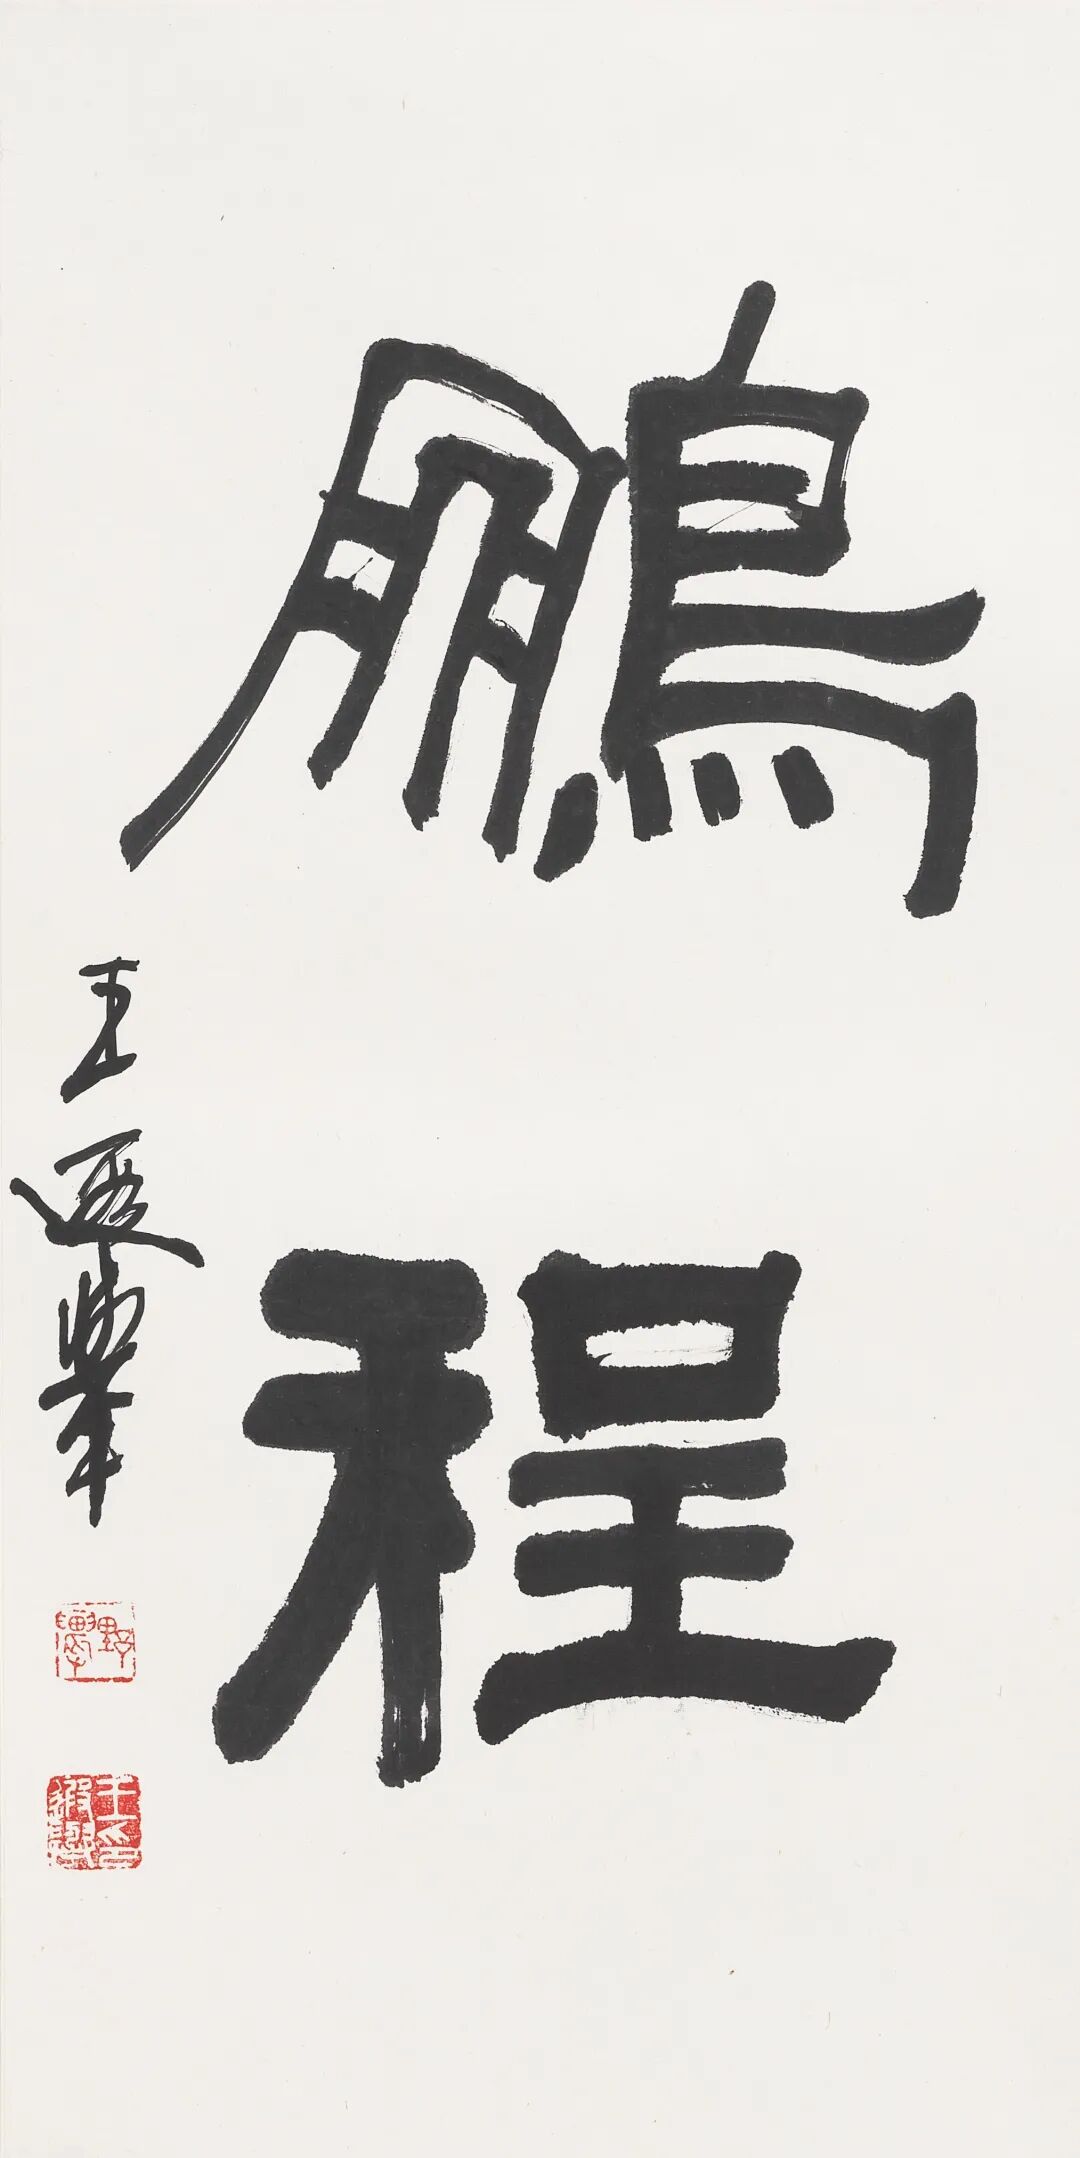 鵬程
王遐舉
王印遐舉